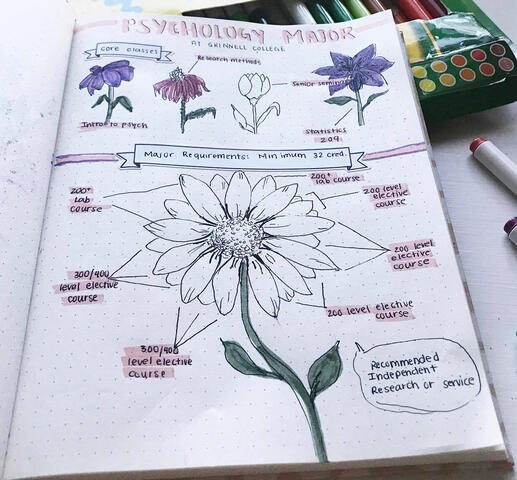 PSYCHOLOGY MAJOR
AT GRINNELL COLLEGE
core classes
Research methods
Senior seminar
Intro to psych
Statistics
209
Major Requirements: Minimum 32 cred.
200+
lab course
200+
Lab
course
200 level
elective
course
200 level
elective
course
300/400
level elective
course
200 level elective
course
300/400
level elective
course
Recommended
Independent
Research or service